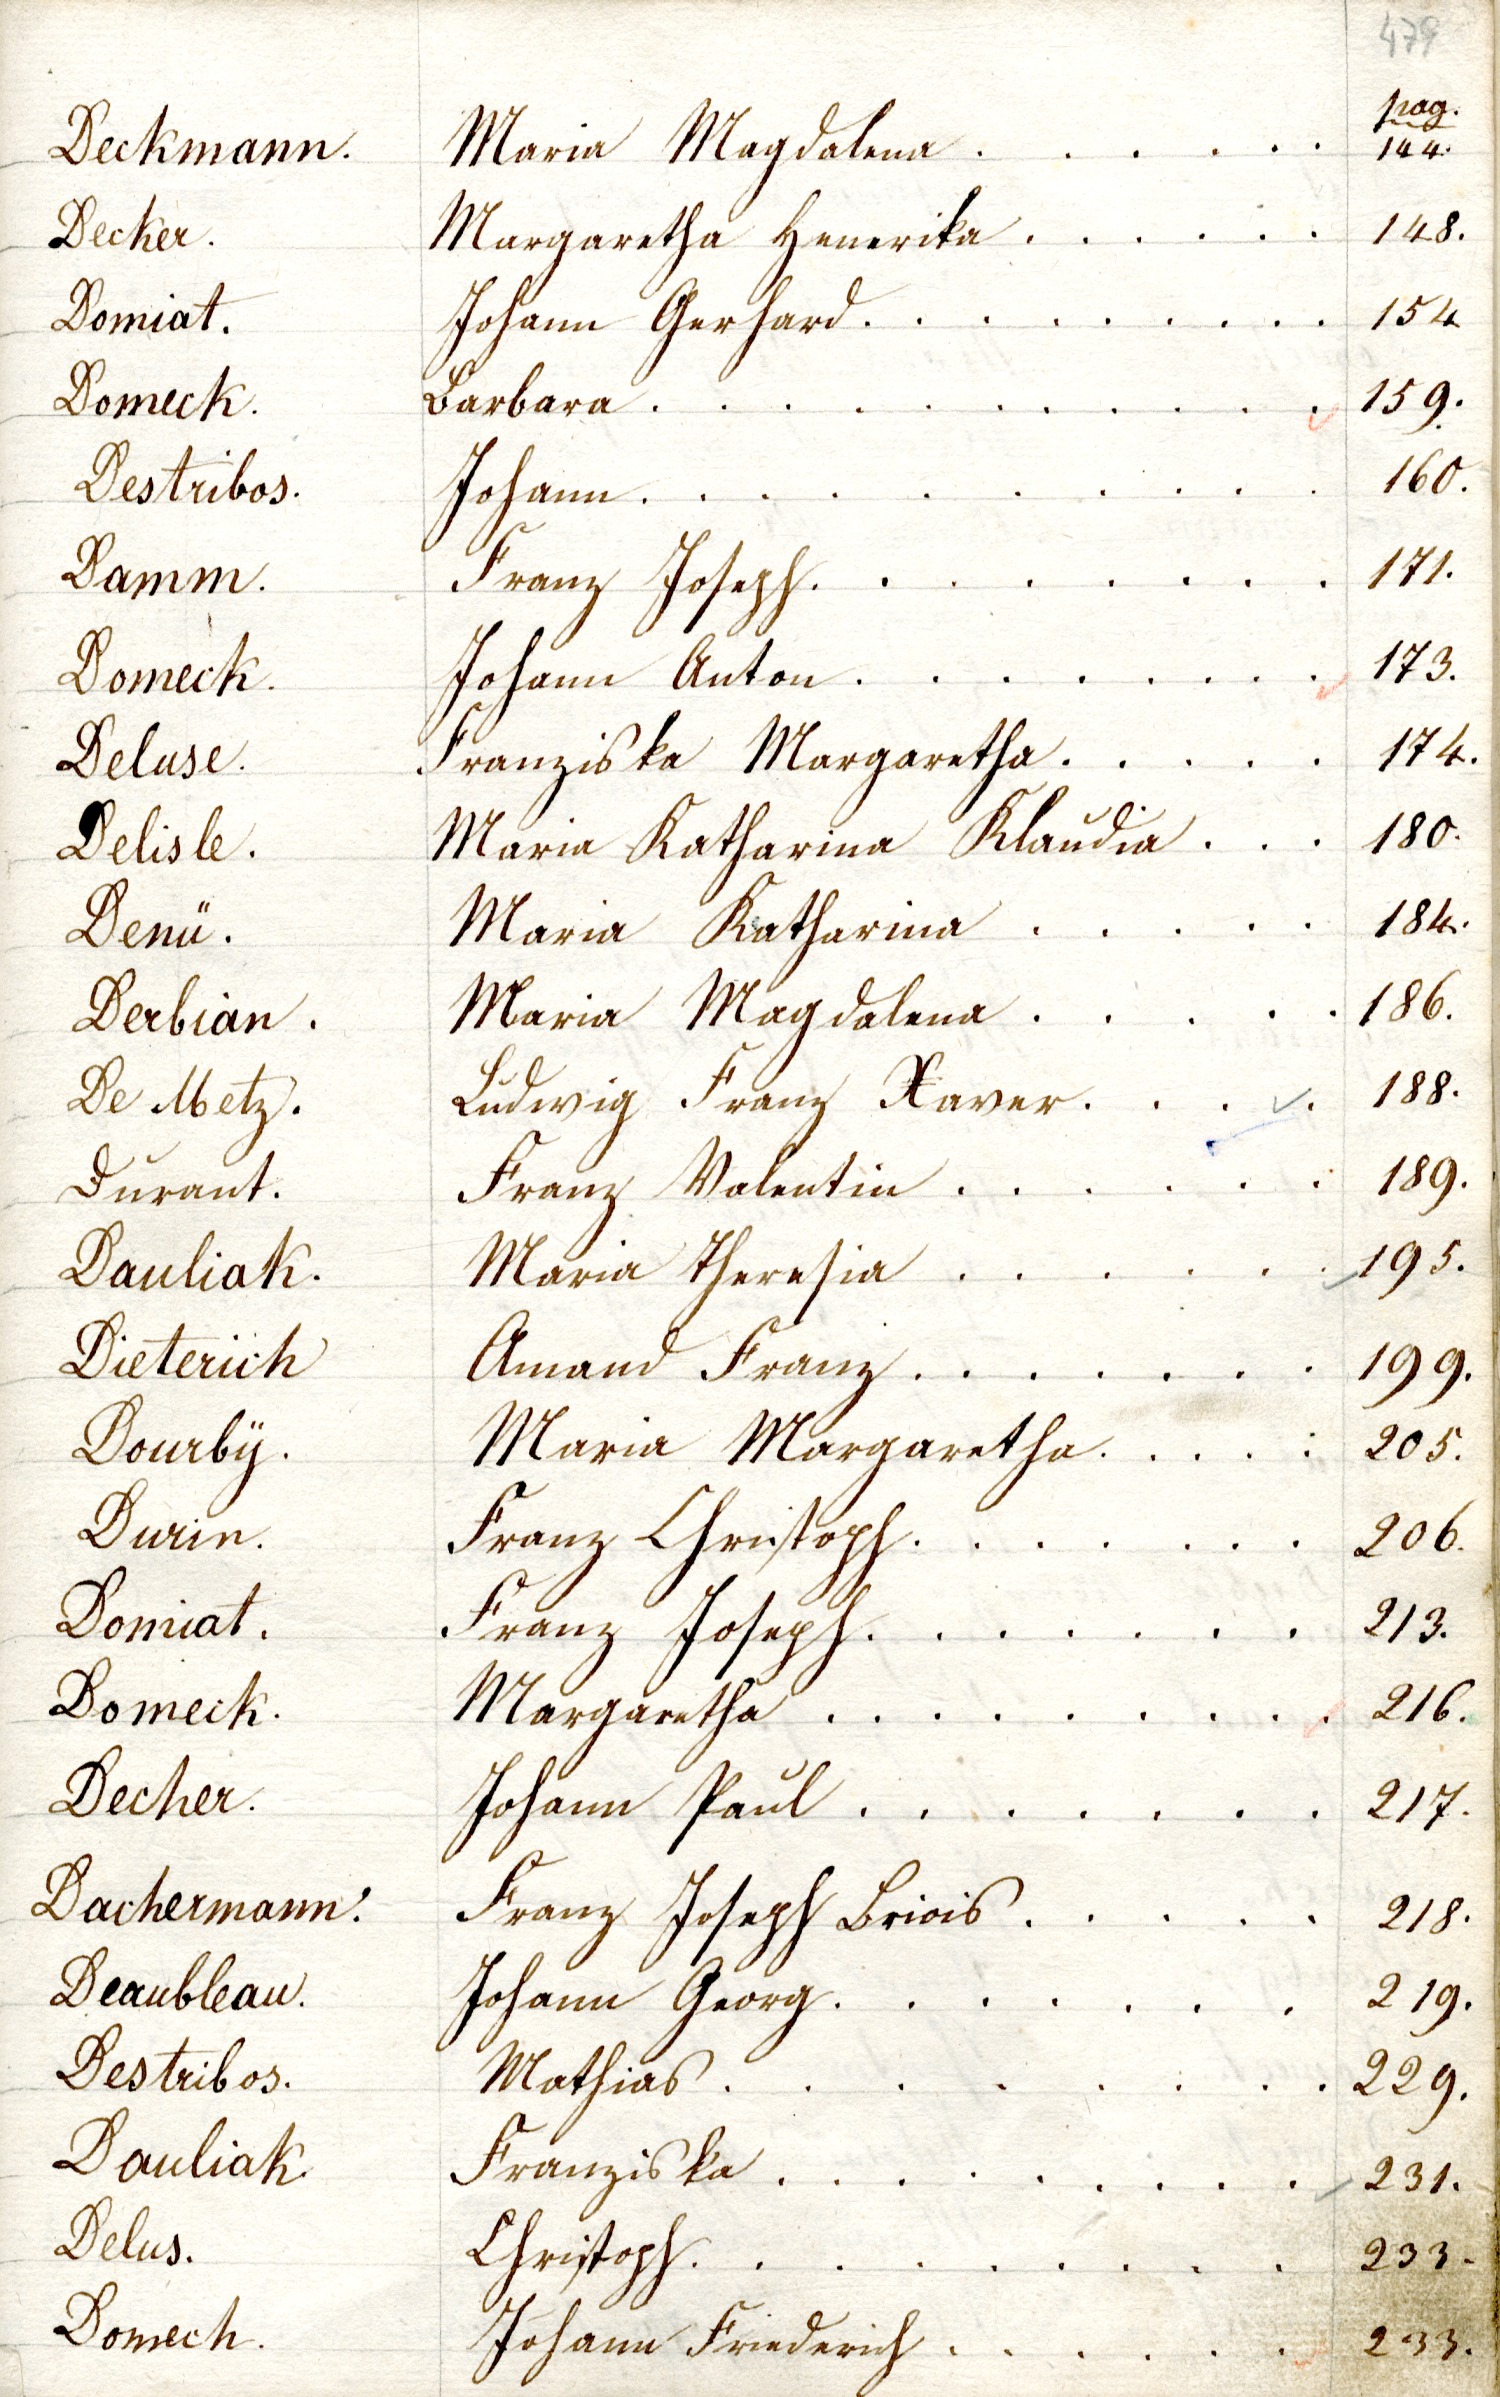 479
pag.
Deckmann. Maria Magdalena . . . . . . 144.
Decker. Margaretha Henerika . . . . . . 148.
Domiat. Johann Gerhard . . . . . . . . . 154
Domeck. Barbara . . . . . . . . . . . 159.
Destribos. Johann . . . . . . . . . . . 160.
Damm. Franz Joseph . . . . . . . . . 171.
Domeck. Johann Anton . . . . . . . . . 173.
Deluse. Franziska Margaretha . . . . . 174.
Delisle. Maria Katharina Klaudia . . . 180.
Denü. Maria Katharina . . . . . 184.
Derbian. Maria Magdalena . . . . . . 186.
De Metz. Ludwig Franz Xaver . . . . 188.
Durant. Franz Valentin . . . . . . . 189.
Dauliak. Maria Theresia . . . . . . . 195.
Dieterich Amand Franz . . . . . . . 199.
Dourbÿ. Maria Margaretha . . . . : 205.
Durin. Franz Christoph . . . . . . . 206.
Domiat. Franz Joseph . . . . . . . . 213.
Domeck. Margaretha . . . . . . . . . . 216.
Decher. Johann Paul . . . . . . . . 217.
Dachermann. Franz Joseph Briois . . . . . 218.
Deaubleau. Johann Georg . . . . . . . 219.
Destribos. Mathias . . . . . . . . . 229.
Dauliak. Franziska . . . . . . . . . 231.
Delus. Christoph . . . . . . . . . 233.
Domech. Johann Friederich . . . . . . 233.